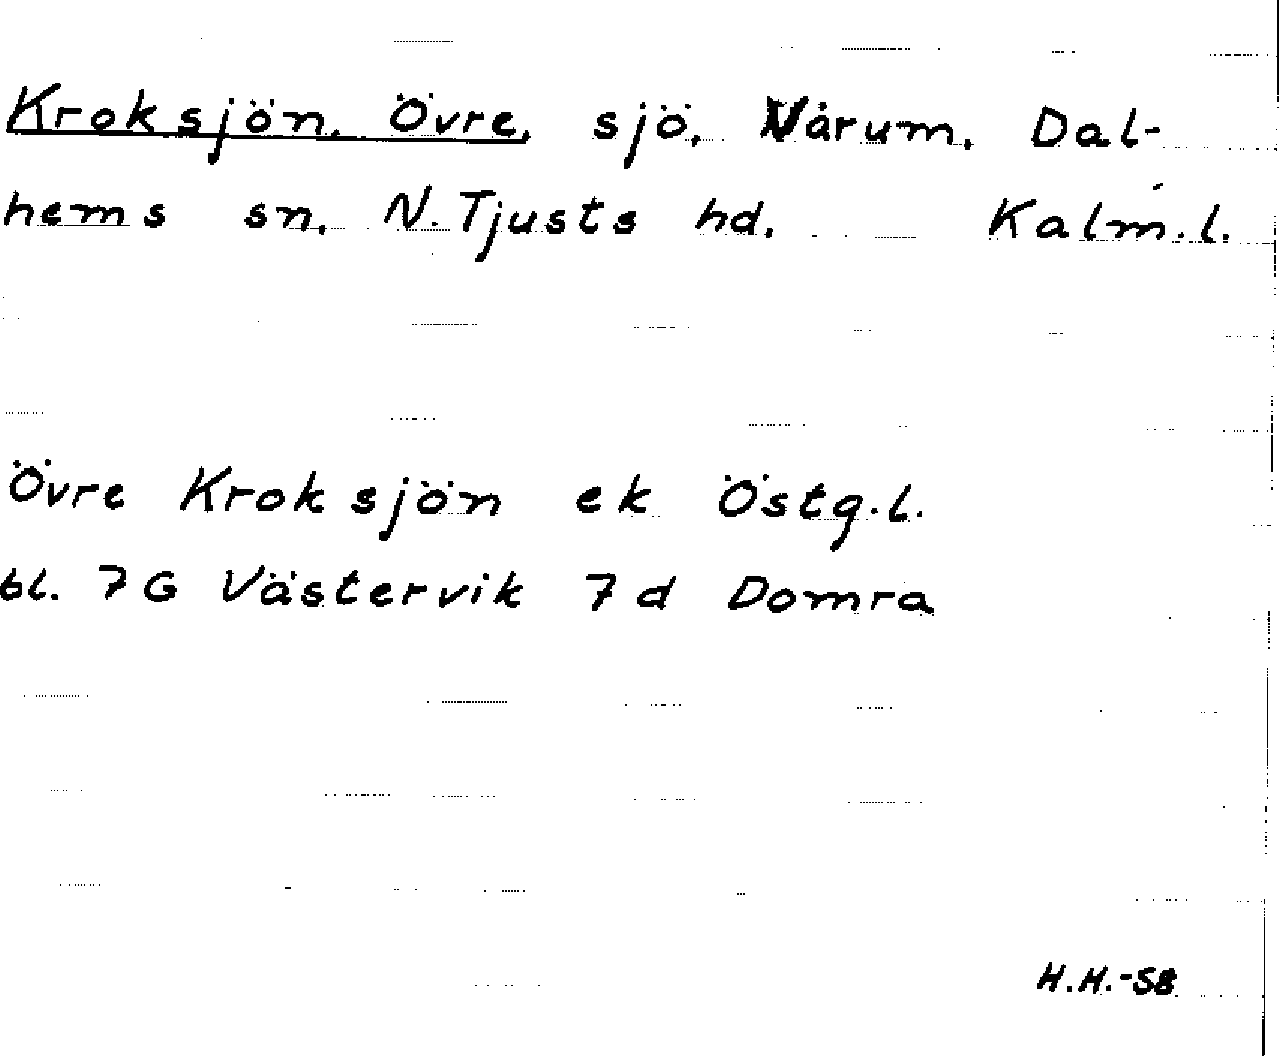 Kroksjön, Övre, sjö, Vårum, Dal-
hems sn, N. Tjusts hd. Kalm.l.
Övre Kroksjön ek Östg.l.
bl. 7G Västervik 7d Domra
H.H.-58